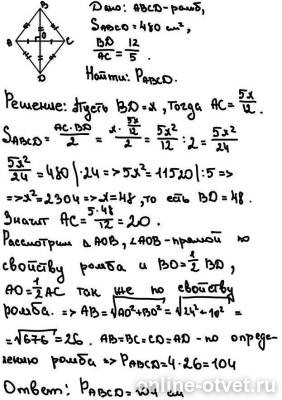 B
A
O
C
D
Дано: ABCD-ромб,
SABCD = 480 см²,
BD/AC = 12/5.
Найти: PABCD.
Решение: Пусть BD=x, тогда AC = 5x/12.
SABCD = AC·BD/2 = x·5x/12/2 = 5x²/12 : 2 = 5x²/24
5x²/24 = 480 |·24 => 5x² = 11520 |:5 =>
=> x² = 2304 => x = 48, то есть BD = 48.
Значит AC = 5·48/12 = 20.
Рассмотрим ΔAOB, ∠AOB-прямой по
свойству ромба и BO = 1/2 BD,
AO = 1/2 AC так же по свойству
ромба. => AB = √AO²+BO² = √24²+10² =
= √676 = 26. AB=BC=CD=AD - по опреде-
лению ромба => PABCD = 4·26 = 104
Ответ: PABCD = 104 см
online-otvet.ru